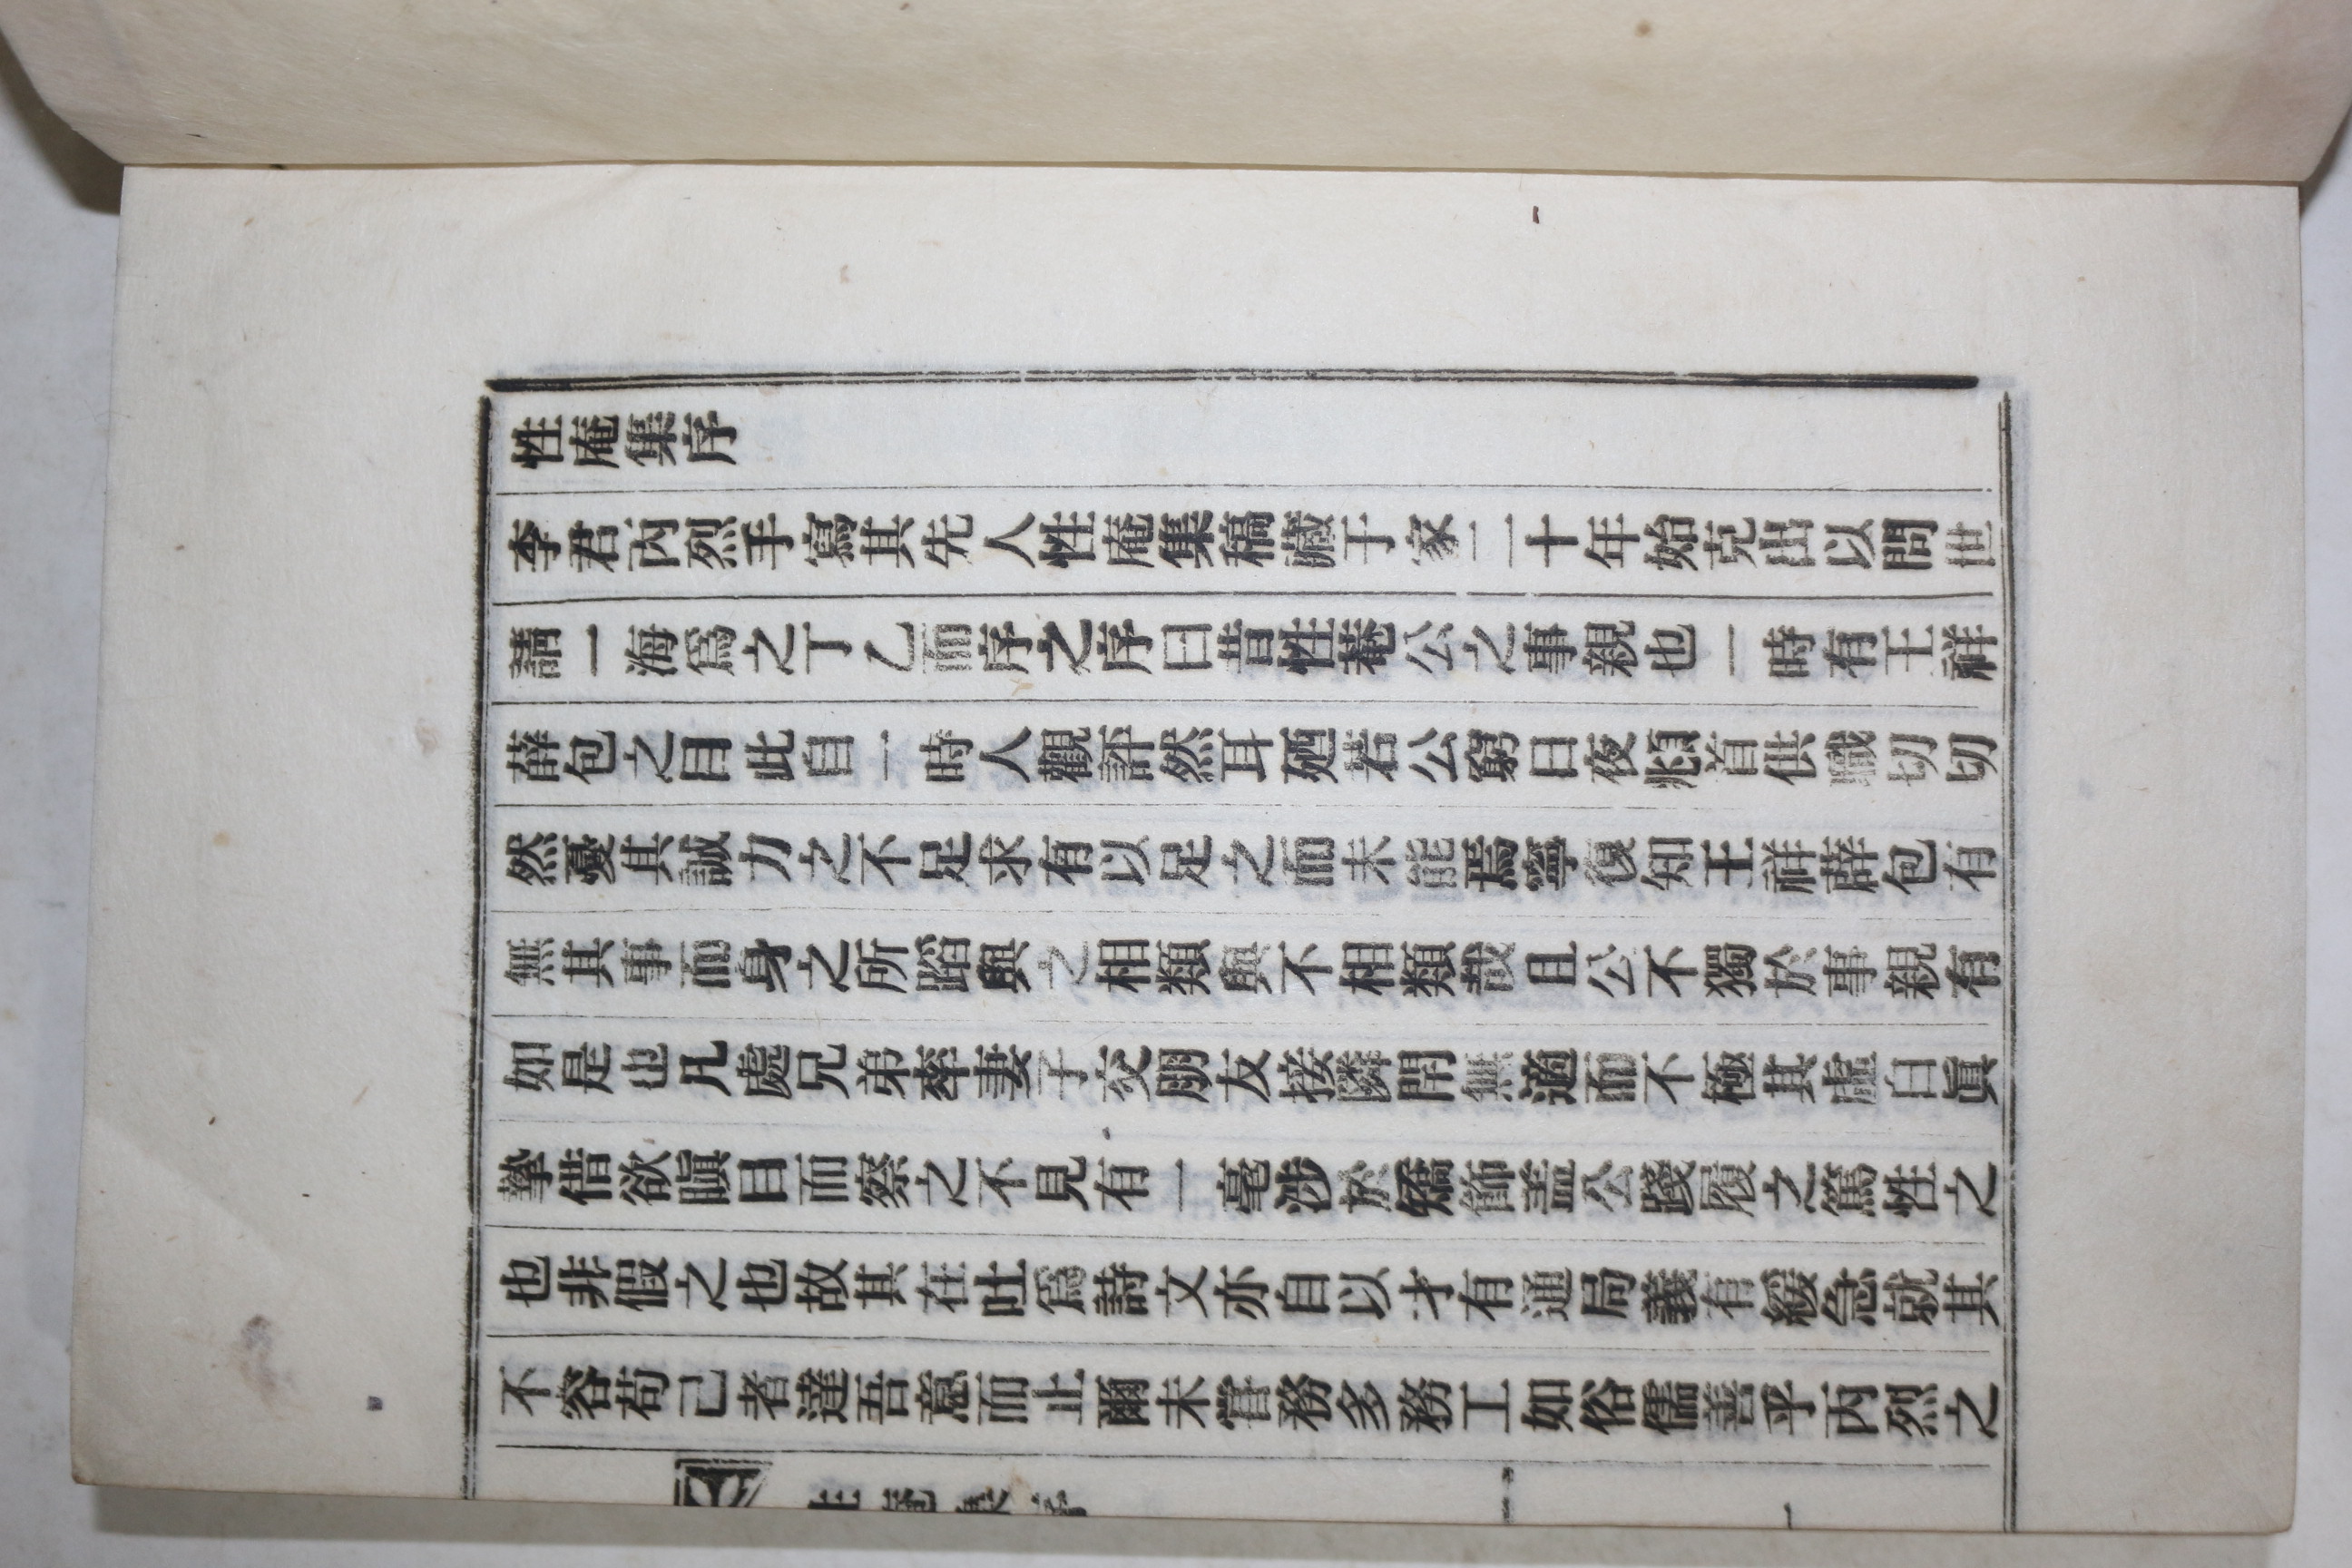 性庵集序
李君丙烈手寫其先人性庵集稿藏于家二十年始克出以問世
請一海爲之丁乙而序之序曰昔性菴公之事親也一時有王祥
薛包之目此自一時人觀評然耳廼若公窮日夜頫首供職切切
然憂其誠力之不足求有以足之而未能焉寧復知王祥薛包有
無其事而身之所蹈與之相類與不相類哉且公不獨於事親有
如是也凡處兄弟率妻子交朋友接隣閈無適而不極其虛白眞
摯借欲瞋目而察之不見有一毫涉於矯飾盖公踐履之篤性之
也非假之也故其在吐爲詩文亦自以才有通局義有緩急就其
不容苟己者達吾意而止爾未嘗務多務工如俗儒善乎丙烈之
性庵集序
一